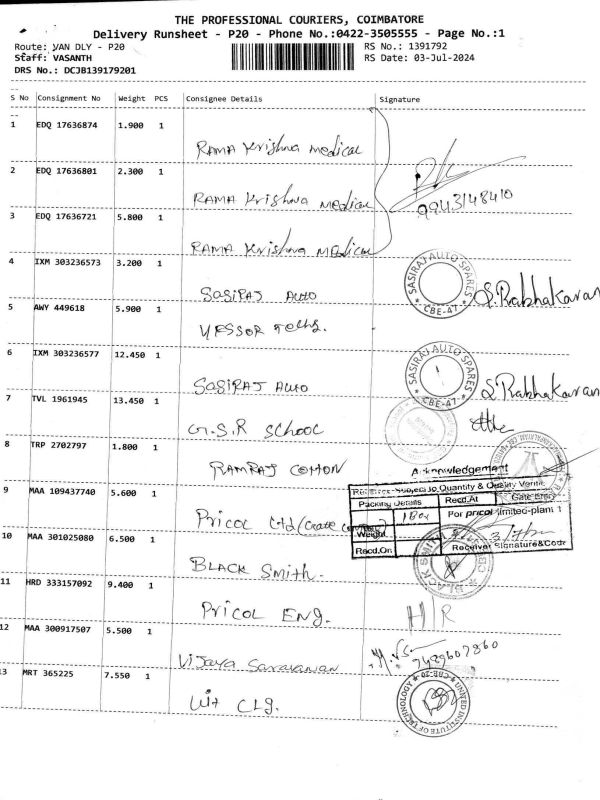 THE PROFESSIONAL COURIERS, COIMBATORE
Delivery Runsheet - P20 - Phone No.:0422-3505555 - Page No.:1
Route: VAN DLY - P20 RS No.: 1391792
Staff: VASANTH RS Date: 03-Jul-2024
DRS No.: DCJB139179201
S No Consignment No Weight PCS Consignee Details Signature
1 EDQ 17636874 1.900 1
RAMA Krishna medical
2 EDQ 17636801 2.300 1
RAMA Krishna medical
9943148410
3 EDQ 17636721 5.800 1
RAMA Krishna MEDical
4 IXM 303236573 3.200 1
SASIRAJ Auto
SASIRAJ AUTO SPARES
CBE-47
S. Rabhakaran
5 AWY 449618 5.900 1
6 IXM 303236577 12.450 1
SASIRAJ AUTO
SASIRAJ AUTO SPARES
CBE-47
S. Rabhakaran
7 TVL 1961945 13.450 1
G.S.R SCHOOL
8 TRP 2702797 1.800 1
RAMRAJ COTTON
Acknowledgement
Subject to Quantity & Quality
Packing Details Recd.At Gate Entry
1 Box For pricol limited-plant 1
Weight
Recd.On Receiver Signature&Code
9 MAA 109437740 5.600 1
Pricol Ltd
10 MAA 301025080 6.500 1
BLACK Smith.
BLACK SMITH
11 HRD 333157092 9.400 1
Pricol ENG.
H/R
12 MAA 300917507 5.500 1
Vijaya Saravanan
7429607860
13 MRT 365225 7.550 1
Uit CLG.
UNITED INSTITUTE OF TECHNOLOGY
CBE-20